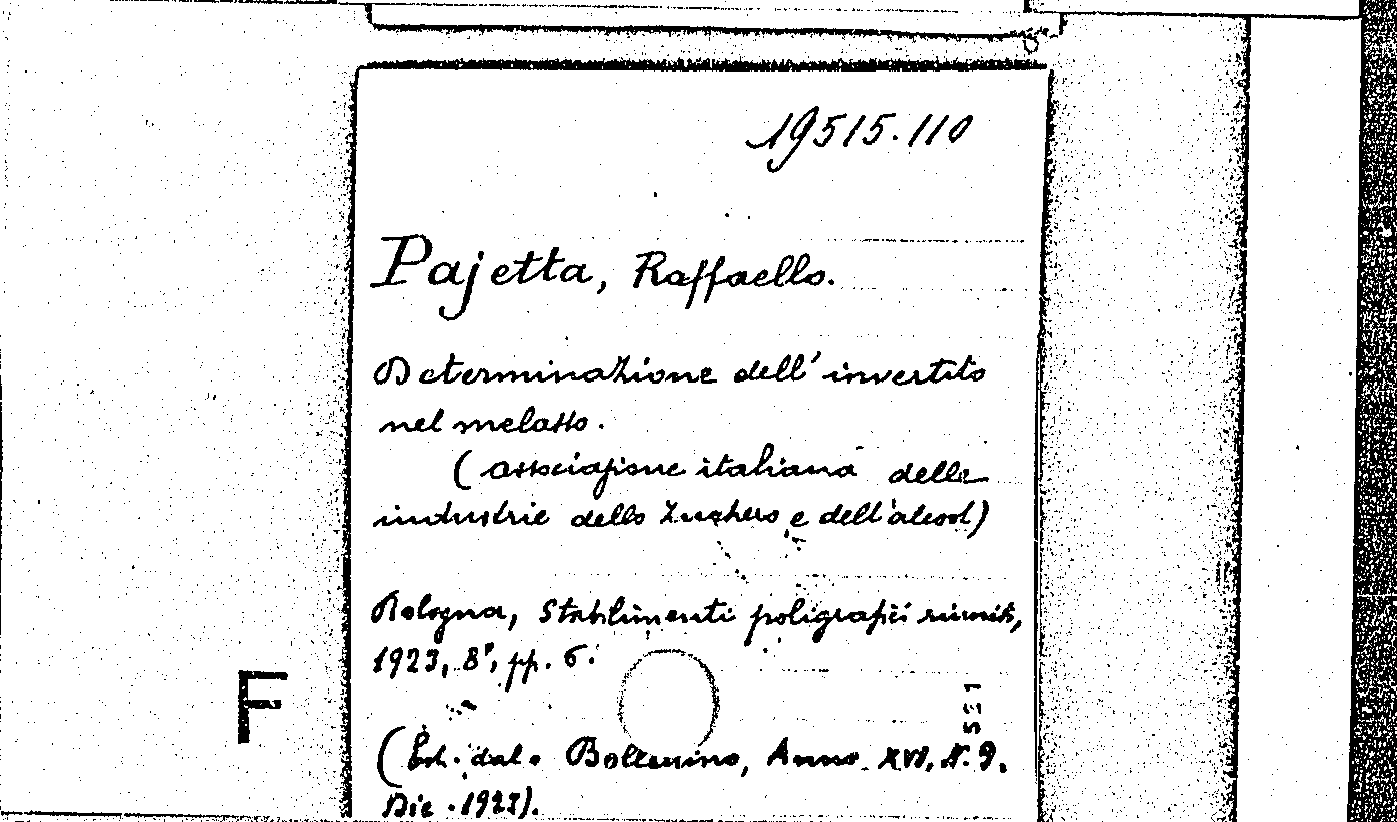 19515.110
Pajetta, Raffaello.
Determinazione dell'invertito
nel melasso.
(associazione italiana delle
industrie dello zucchero e dell'alcool)
Bologna, Stabilimenti poligrafici riuniti,
1923, 8°, pp. 6.
F
521
(Estr. dal. Bollettino, Anno XVI, N. 9,
Dic. 1923).